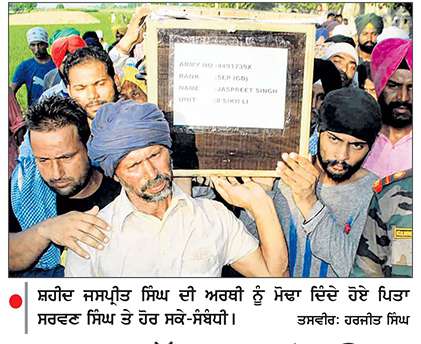 ARMY NO
RANK :SEP (GD)
NAME :JASPREET SINGH
UNIT
ਸ਼ਹੀਦ ਜਸਪ੍ਰੀਤ ਸਿੰਘ ਦੀ ਅਰਥੀ ਨੂੰ ਮੋਢਾ ਦਿੰਦੇ ਹੋਏ ਪਿਤਾ
ਸਰਵਣ ਸਿੰਘ ਤੇ ਹੋਰ ਸਕੇ-ਸੰਬੰਧੀ।
ਤਸਵੀਰ: ਹਰਜੀਤ ਸਿੰਘ